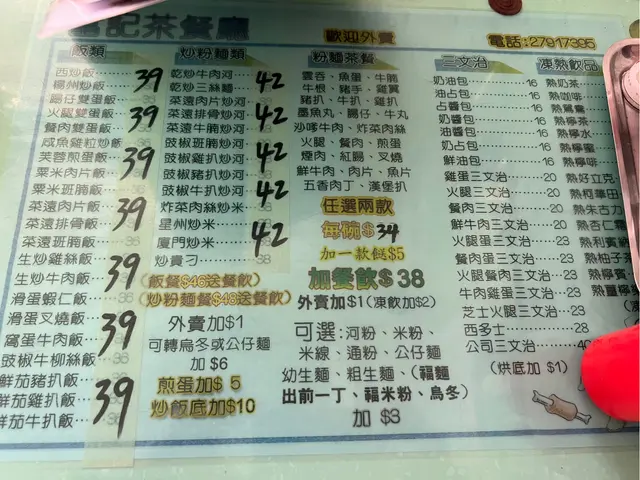 記茶餐廳
歡迎外賣
電話:27917395
飯類
西炒飯
楊州炒飯
腸仔雙蛋飯
火腿雙蛋飯
餐肉雙蛋飯
咸魚雞粒炒飯
芙蓉煎蛋飯
粟米肉片飯
粟米斑腩飯
菜遠肉片飯
菜遠排骨飯
菜遠斑腩飯
生炒雞絲飯
生炒牛肉飯
滑蛋蝦仁飯
滑蛋叉燒飯
窩蛋牛肉飯
豉椒牛柳絲飯
鮮茄豬扒飯
鮮茄雞扒飯
鮮茄牛扒飯
39
39
39
39
39
39
39
炒粉麵類
乾炒牛肉河
乾炒三絲麵
菜遠肉片炒河
菜遠排骨炒河
菜遠牛腩炒河
豉椒斑腩炒河
豉椒雞扒炒河
豉椒豬扒炒河
豉椒牛扒炒河
炸菜肉絲炒米
星州炒米
廈門炒米
炒貴刁
42
42
42
42
42
(飯餐$46送餐飲)
(炒粉麵餐$48送餐飲)
外賣加$1
可轉烏冬或公仔麵
加 $6
煎蛋加$ 5
炒飯底加$10
粉麵茶餐
雲吞、魚蛋、牛腩
牛根、豬手、雞翼
豬扒、牛扒、雞扒
墨魚丸、腸仔、牛丸
沙嗲牛肉、炸菜肉絲
火腿、餐肉、煎蛋
煙肉、紅腸、叉燒
鮮牛肉、肉片、魚片
五香肉丁、漢堡扒
任選兩款
每碗$34
加一款餸$5
加餐飲$38
外賣加$1(凍飲加$2)
可選:河粉、米粉、
米線、通粉、公仔麵
幼生麵、粗生麵、(福麵
出前一丁、福米粉、烏冬)
加 $3
三文治
奶油包 16
油占包 16
占醬包 16
奶醬包 16
油醬包 16
奶占包 16
鮮油包 16
雞蛋三文治 20
火腿三文治 20
餐肉三文治 20
鮮牛肉三文治 20
火腿蛋三文治 23
餐肉蛋三文治 23
火腿餐肉三文治 23
牛肉雞蛋三文治 23
芝士火腿三文治 23
西多士 28
公司三文治 40
(烘底加 $1)
凍熱飲品
熱奶茶
熱咖啡
熱鴛鴦
熱檸茶
熱檸水
熱檸蜜
熱檸啡
熱好立克
熱柯華田
熱朱古力
熱杏仁霜
熱利賓納
熱柚子茶